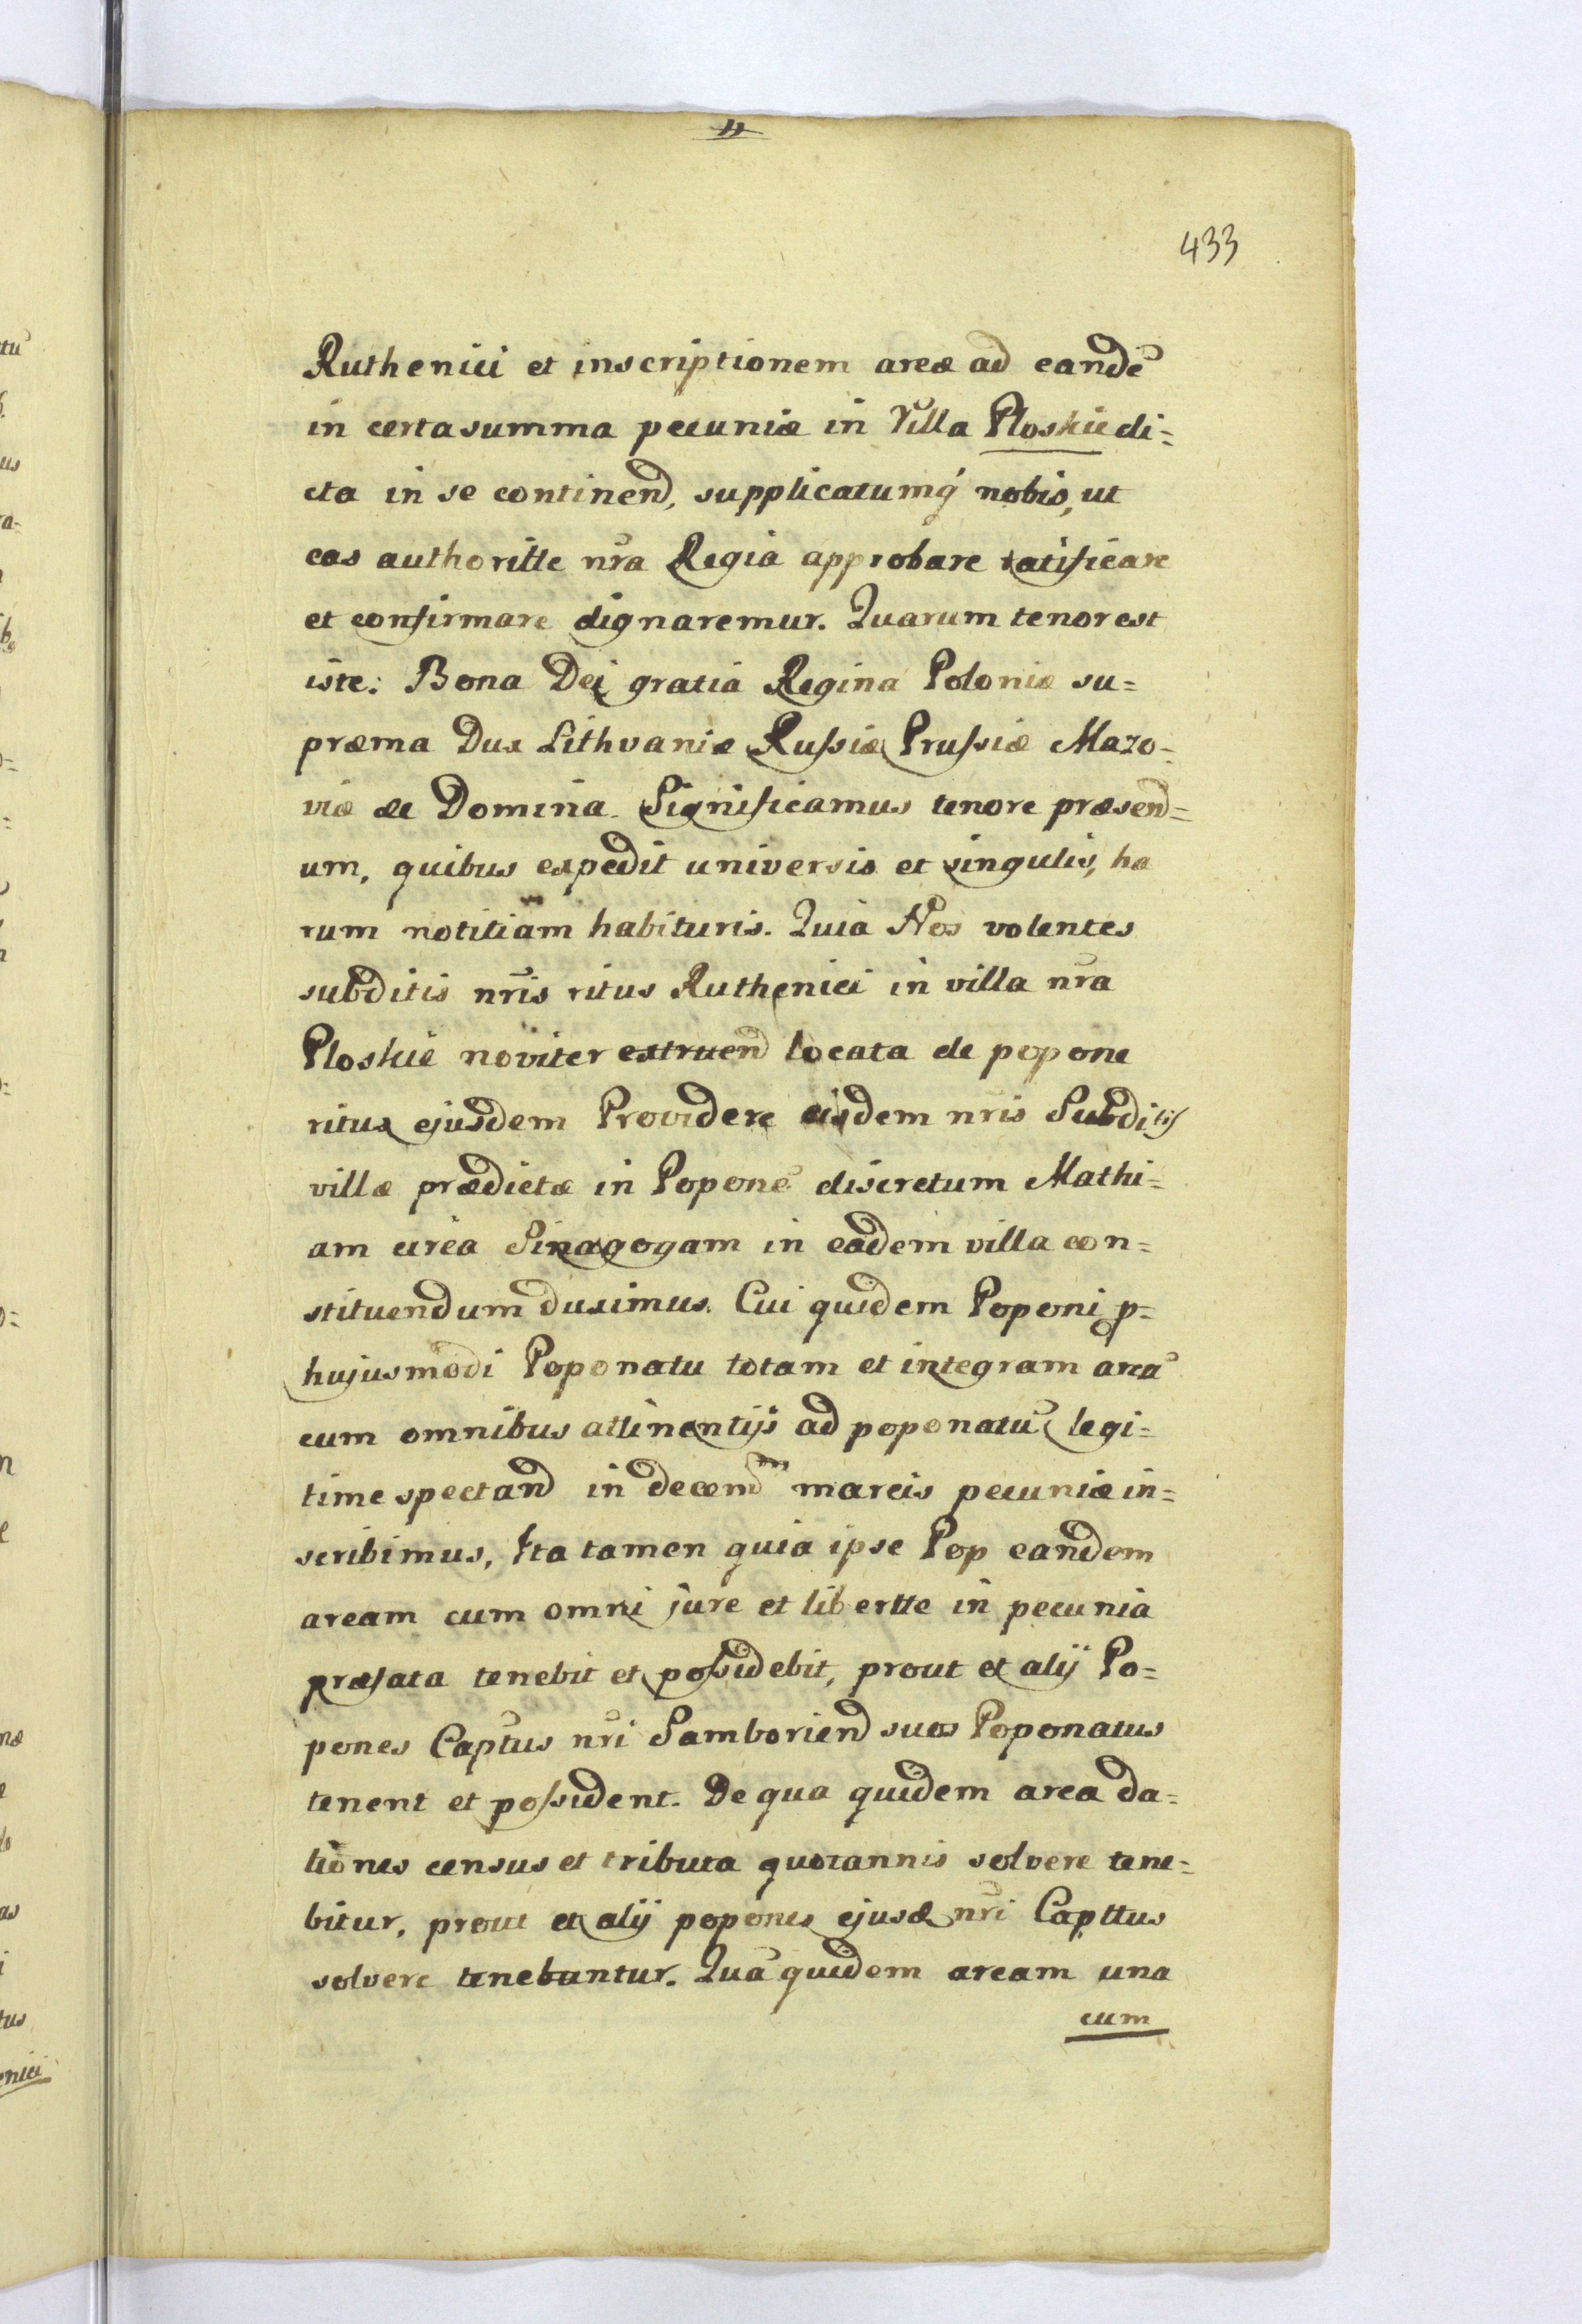 11
433
Ruthenici et inscriptionem areæ ad eandẽ
in certa summa pecuniæ in Villa Ploskie di=
cta in se continend, supplicatumq́ nobis, ut
eas authoritte nr̃a Regia approbare ratificare
et confirmare dignaremur. Quarum tenor est
iste: Bona Dei gratia Regina Poloniæ su=
præma Dux Lithvaniæ Russiæ Prussiæ Mazo=
viæ &c Domina. Significamus tenore præsend=
um, quibus expedit universis et singulis, ha
rum notitiam habituris. Quia Nos volentes
subditis nr̃is ritus Ruthenici in villa nr̃a
Ploskie noviter extruend locata de popone
ritus ejusdem Providere eisdem nr̃is Subditis
villæ prædictæ in Poponẽ discretum Mathi=
am circa Sinagogam in eadem villa con=
stituendum duximus. Cui quidem Poponi p=
hujusmodi Poponatu totam et integram areã
cum omnibus attinentijs ad poponatũ legi=
time spectand in decem marcis pecuniæ in=
scribimus, Ita tamen quia ipse Pop eandem
aream cum omni jure et libertte in pecunia
præfata tenebit et possidebit, prout et alij Po=
pones Captus nr̃i Samboriend suos Poponatus
tenent et possident. De qua quidem area da=
tiones census et tributa quotannis solvere tene=
bitur, prout et alij popones ejusd nr̃i Capttus
solvere tenebuntur. Quã quidem aream una
cum